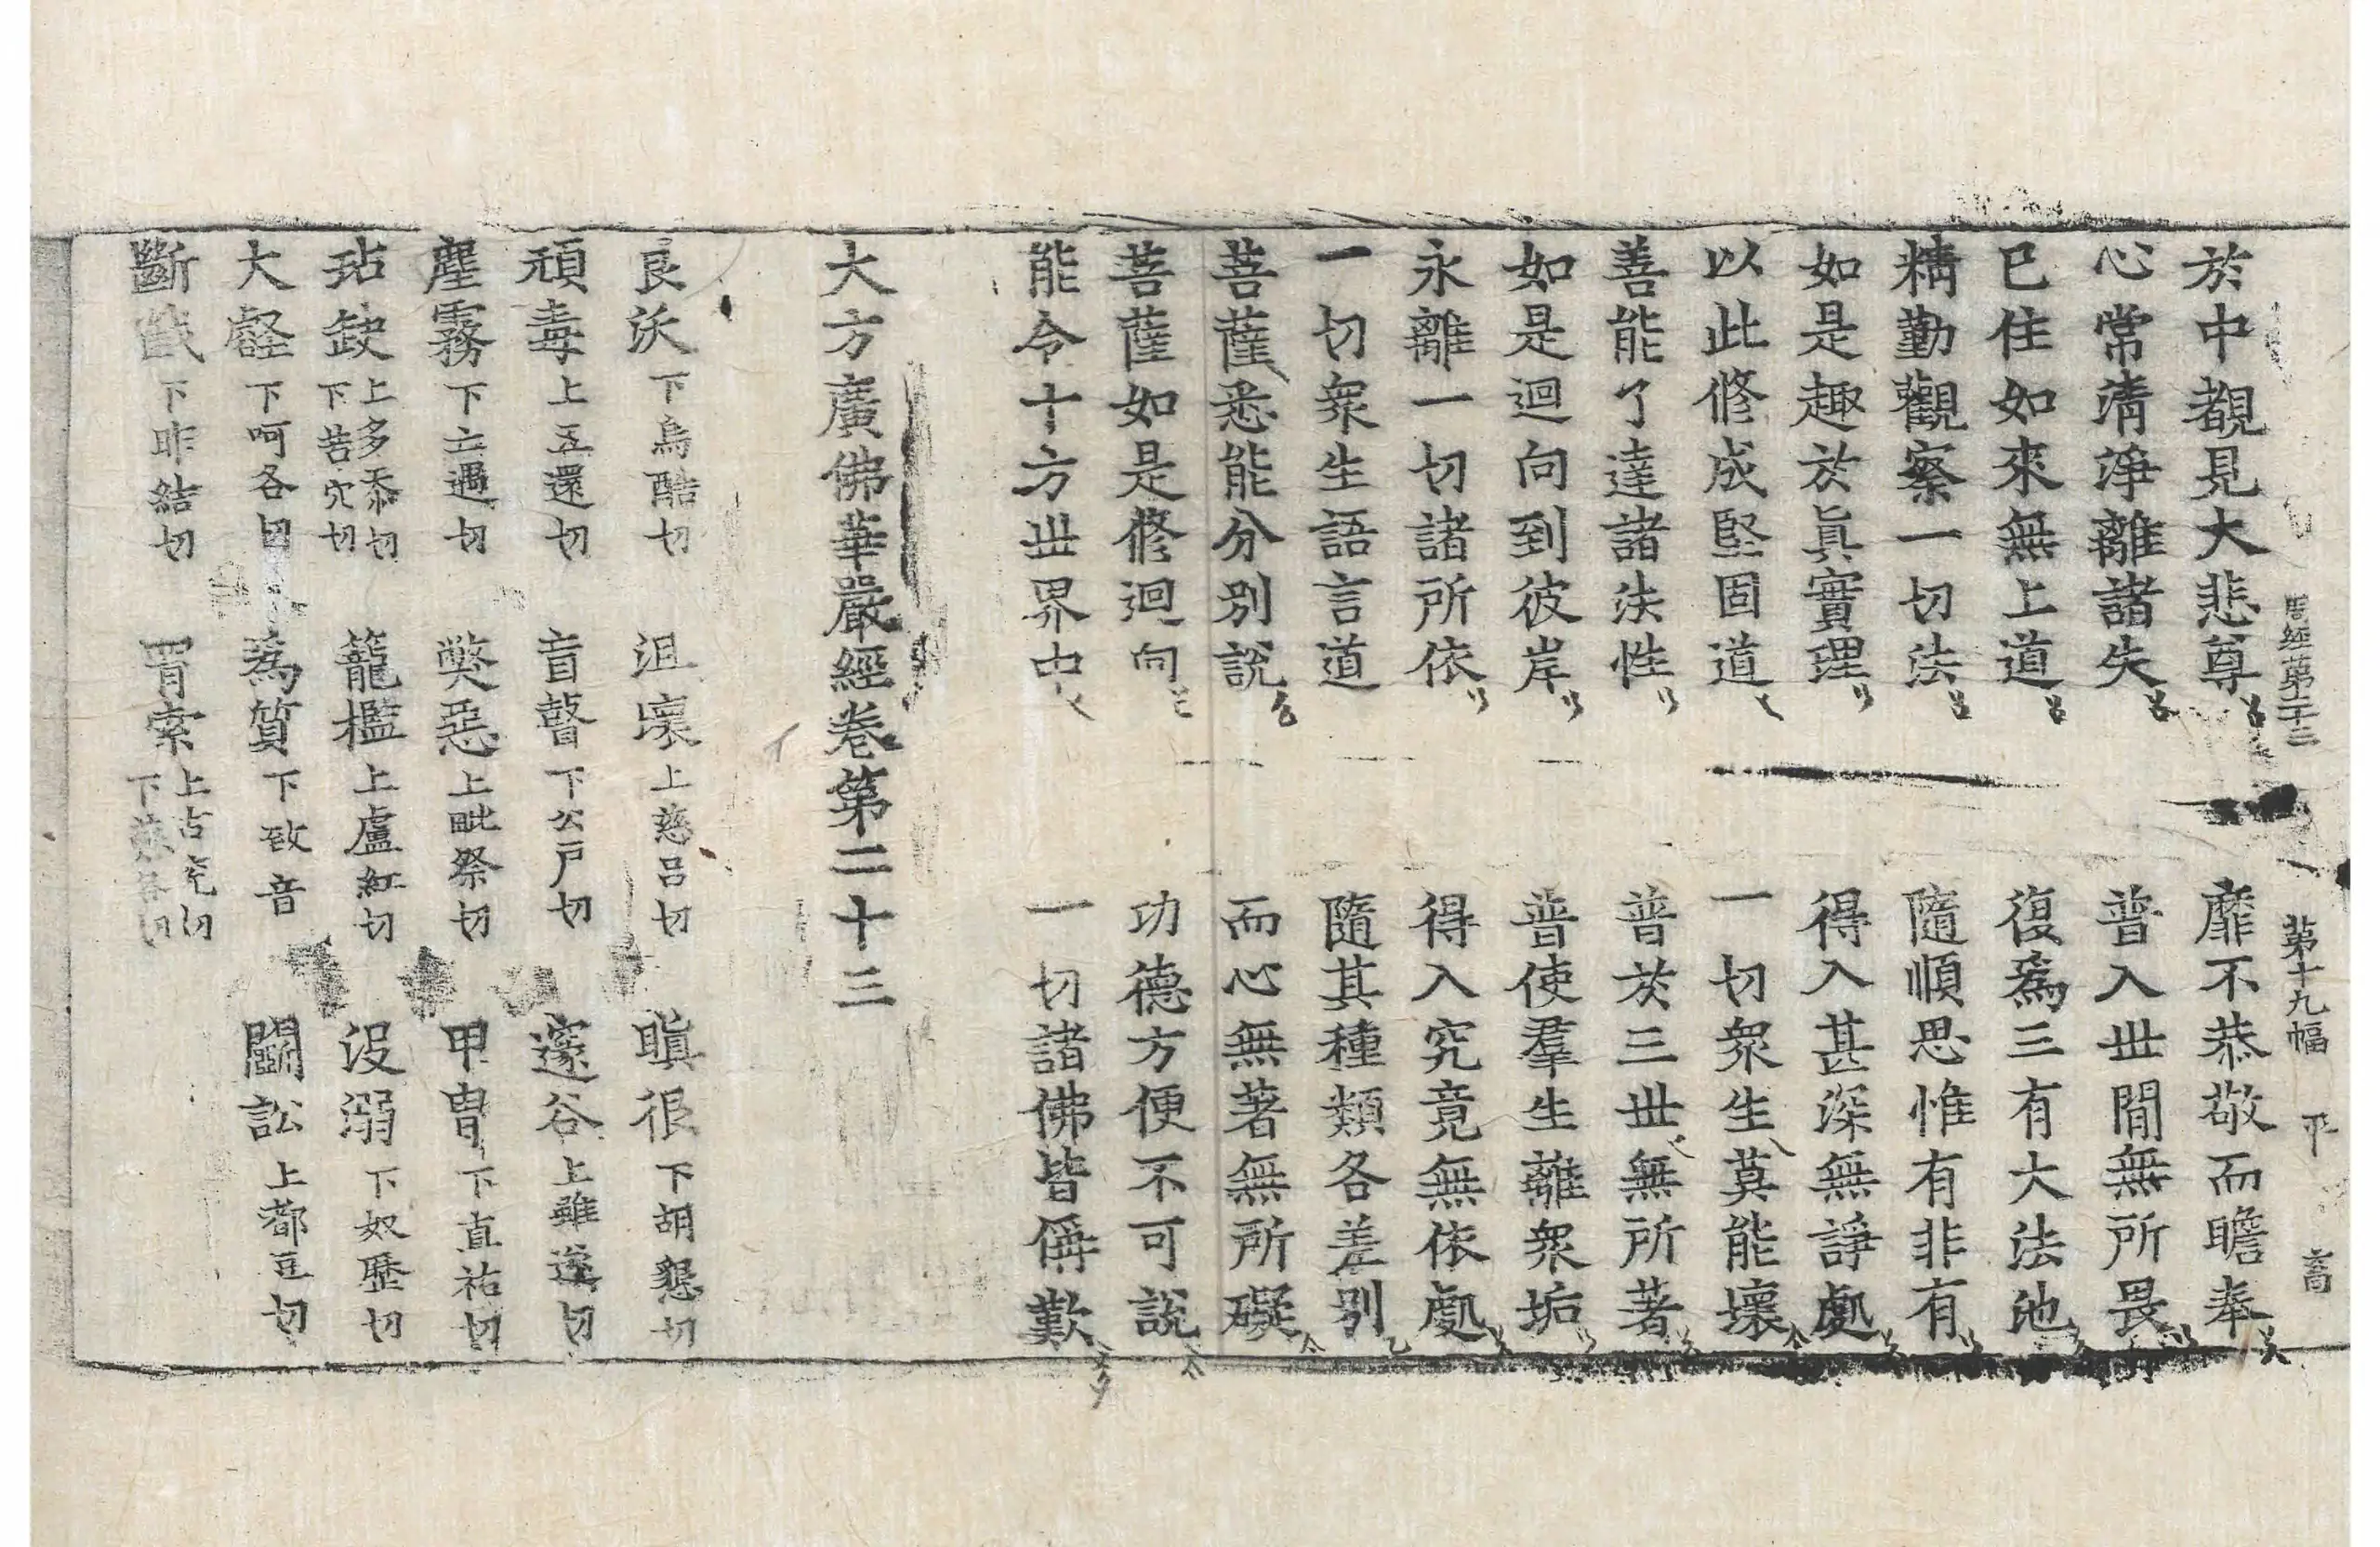 周經第二十三 第十九幅 平 畜
於中覩見大悲尊 靡不恭敬而瞻奉
心常清淨離諸失 普入世間無所畏
已住如來無上道 復為三有大法池
精勤觀察一切法 隨順思惟有非有
如是趣於真實理 得入甚深無諍處
以此修成堅固道 一切眾生莫能壞
善能了達諸法性 普於三世無所著
如是迴向到彼岸 普使羣生離眾垢
永離一切諸所依 得入究竟無依處
一切眾生語言道 隨其種類各差別
菩薩悉能分別說 而心無著無所礙
菩薩如是修迴向 功德方便不可說
能令十方世界中 一切諸佛皆稱歎
大方廣佛華嚴經卷第二十三
良沃 下烏酷切 沮壞 上慈呂切 瞋很 下胡懇切
頑毒 上五還切 盲瞽 下公戶切 邃谷 上雖遂切
塵霧 下亡遇切 弊惡 上毗祭切 甲冑 下直祐切
玷缺 上多忝切 下苦穴切 籠檻 上盧紅切 沒溺 下奴歷切
大壑 下呵各切 為質 下致音 鬭訟 上都豆切
斷截 下昨結切 罥索 上古 切 下 各切